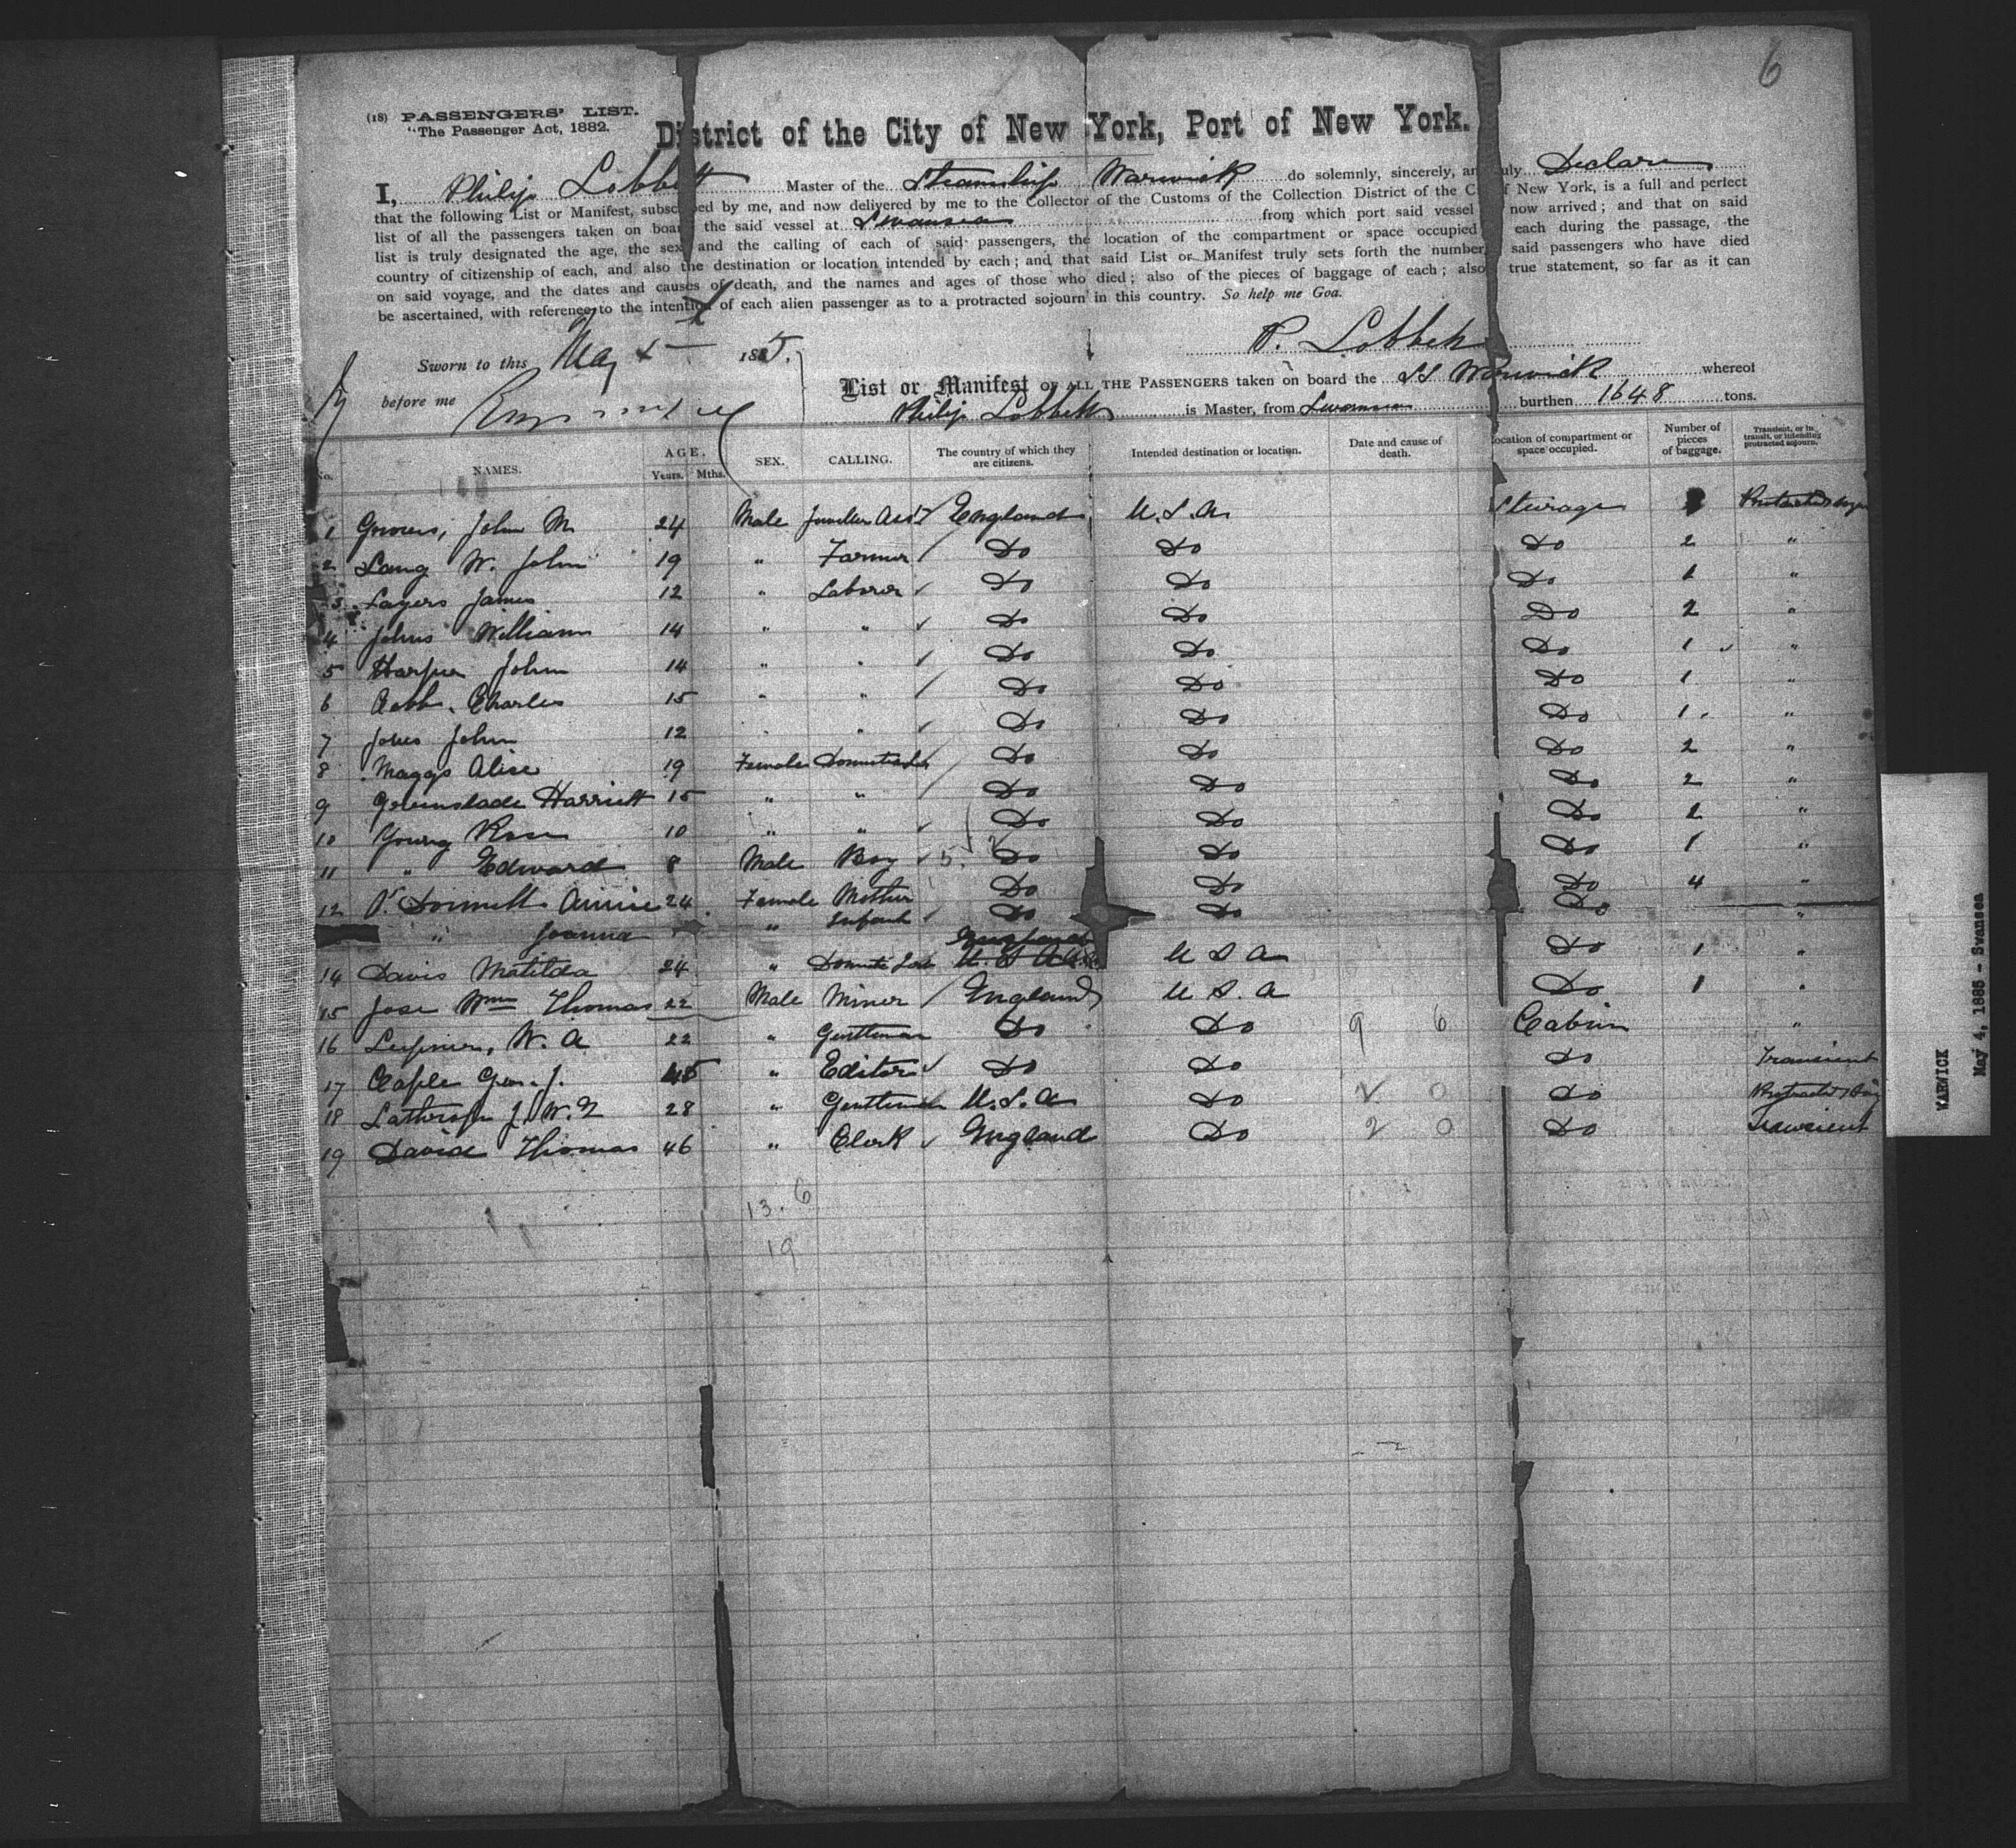 6
(18) PASSENGERS' LIST.
"The Passenger Act, 1882.
District of the City of New York, Port of New York.
I, Philip Lobbett Master of the Steamship Warwick do solemnly, sincerely, and truly Declare
that the following List or Manifest, subscribed by me, and now delivered by me to the Collector of the Customs of the Collection District of the City of New York, is a full and perfect
list of all the passengers taken on board the said vessel at Swansea from which port said vessel now arrived; and that on said
list is truly designated the age, the sex and the calling of each of said passengers, the location of the compartment or space occupied each during the passage, the
country of citizenship of each, and also the destination or location intended by each; and that said List or Manifest truly sets forth the number said passengers who have died
on said voyage, and the dates and causes of death, and the names and ages of those who died; also of the pieces of baggage of each; also true statement, so far as it can
be ascertained, with reference to the intention of each alien passenger as to a protracted sojourn in this country. So help me Goa.
P. Lobbett
Sworn to this May 1885.
before me
List or Manifest OF ALL THE PASSENGERS taken on board the SS Warwick whereof
Philip Lobbett is Master, from Swansea burthen 1648 tons.
No. NAMES. AGE. Years. Mths. SEX. CALLING. The country of which they are citizens. Intended destination or location. Date and cause of death. Location of compartment or space occupied. Number of pieces of baggage. Transient, or in transit, or intending protracted sojourn.
1 John M 24 Male England U.S.A. Steerage
2 Lang W. John 19 " Farmer Do Do Do 2 "
3 Layers James 12 " Laborer Do Do Do 1 "
4 Johns William 14 " " Do Do Do 2 "
5 Harper John 14 " " Do Do Do 1 "
6 Charles 15 " " Do Do Do 1 "
7 John 12 " " Do Do Do 1 "
8 Maggs Alice 19 Female Do Do Do 2 "
9 Greenslade Harriett 15 " " Do Do Do 2 "
10 Young Rose 10 " " Do Do Do 2 "
11 " Edward 8 Male Boy Do Do Do 1 "
12 Annie 24 Female Mother Do Do Do 4 "
" Joanna " Infant Do Do Do "
14 Davis Matilda 24 " England U S A Do 1 "
15 Jose Wm Thomas 22 Male Miner England U S. A Do 1 "
16 W. A 22 " Gentleman Do Do 9 6 Cabin "
17 Geo. J. 45 " Editor Do Do Do Transient
18 Lathrop J. W. 28 " Gentleman U.S.A Do 2 0 Do
19 Thomas 46 " Clerk England Do 2 0 Do Transient
13. 6
19
WARWICK
May 4, 1885 - Swansea